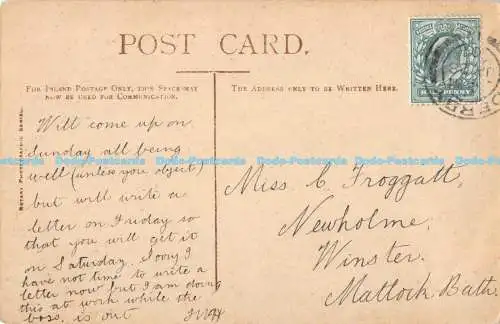 POST CARD.
FOR INLAND POSTAGE ONLY, THIS SPACE MAY
NOW BE USED FOR COMMUNICATION.
THE ADDRESS ONLY TO BE WRITTEN HERE.
HALFPENNY
ROTARY PHOTOGRAPHIC SERIES.
Will come up on
Sunday all being
well (unless you object)
but will write a
letter on Friday so
that you will get it
on Saturday. Sorry I
have not time to write a
letter now but I am doing
this at work while the
boss is out
Miss C Froggatt,
Newholme,
Winster,
Matlock Bath.
www.hippostcard.com